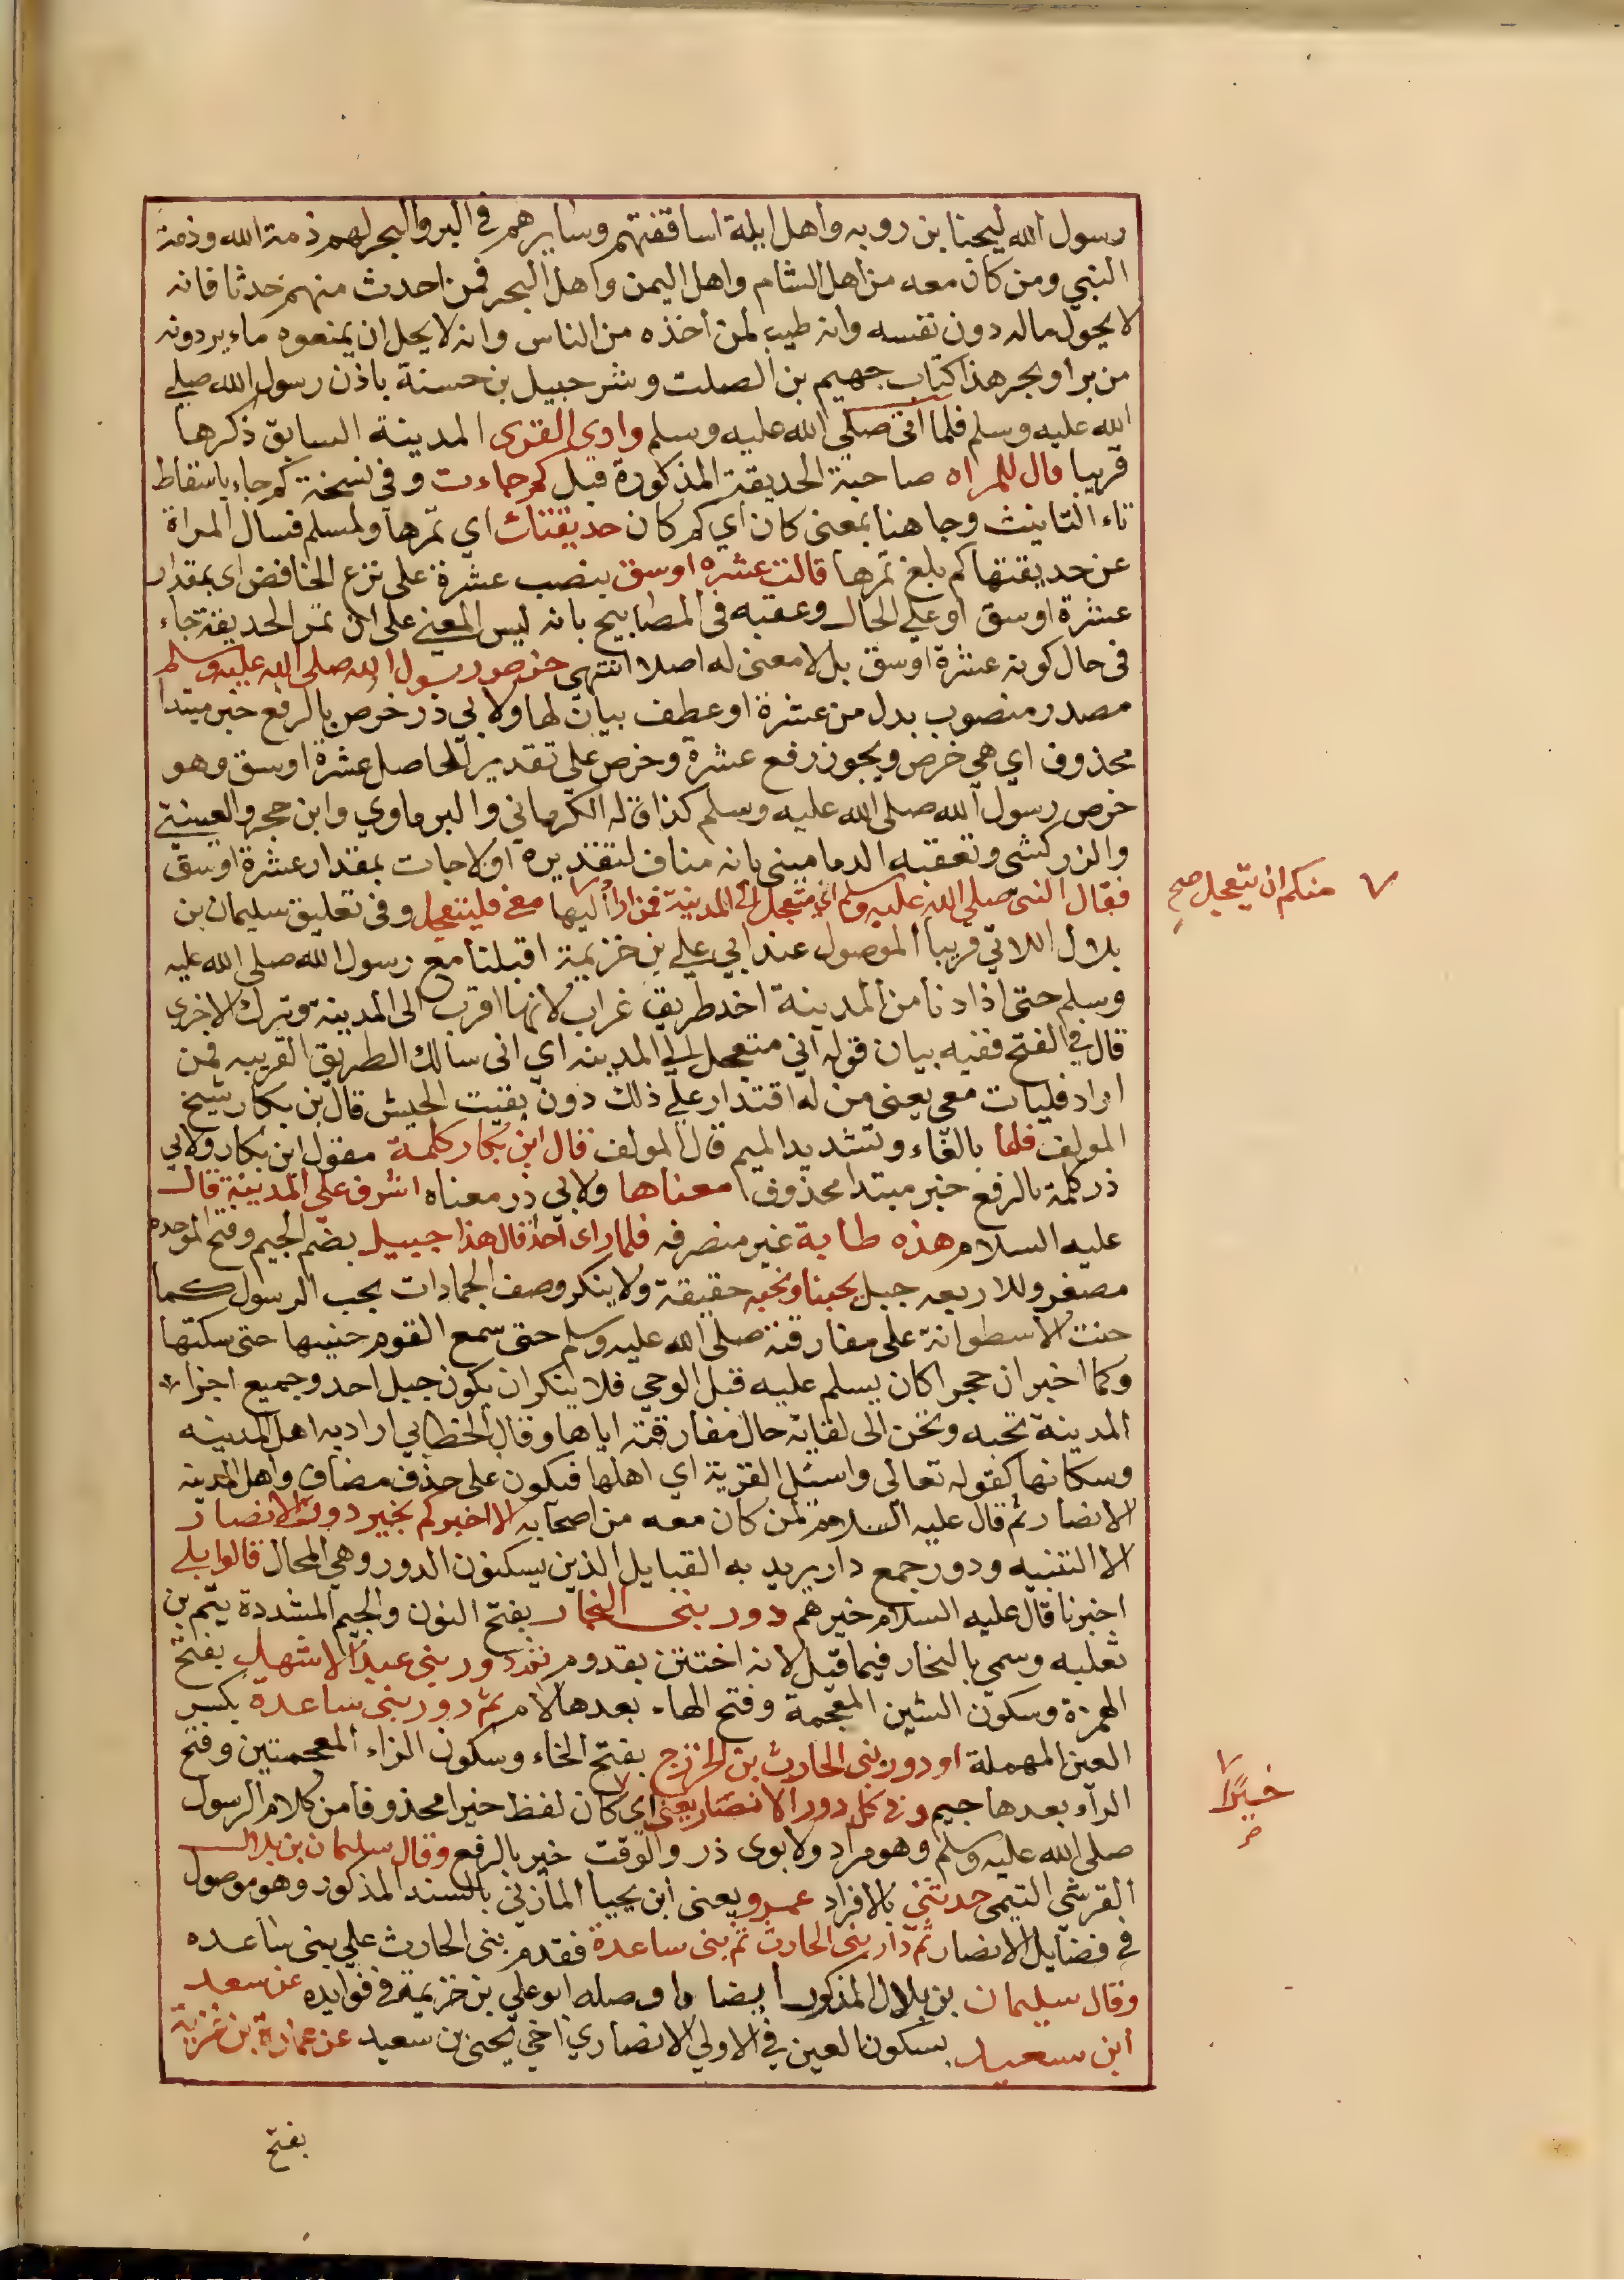 رسول الله ليحنا بن روبه واهل ايلة اساقفتهم وسايرهم في البر والبحر لهم ذمة الله وذمة
النبي ومن كان معه من اهل الشام واهل اليمن واهل البحر فمن احدث منهم حدثا فانه
لا يحول ماله دون نفسه وانه طيب لمن اخذه من الناس وانه لا يحل ان يمنعوه ماء يردونه
من بر او بحر هذا كتاب جهيم بن الصلت وشرحبيل بن حسنة باذن رسول الله صلى
الله عليه وسلم فلما اتى صلى الله عليه وسلم وادي القرى المدينة السابق ذكرها
قريبا قال للمراه صاحبة الحديقة المذكورة قبل كم جاءت وفي نسخة كم جاء باسقاط
تاء التانيث وجا هنا بمعنى كان اي كم كان حديقتك اي تمرها ولمسلم فسال المراة
عن حديقتها كم بلغ تمرها قالت عشرة اوسق بنصب عشرة على نزع الخافض اى بمقدار
عشرة اوسق او على الحال وعقبه في المصابيح بانه ليس المعنى على ان تمر الحديقة جاء
في حال كونه عشرة اوسق بل لا معنى له اصلا انتهى خرص رسول الله صلى الله عليه وسلم
مصدر منصوب بدل من عشرة او عطف بيان لها ولابي ذر خرص بالرفع خبر مبتدا
محذوف اي هي خرص ويجوز رفع عشرة وخرص على تقدير الحاصل عشرة اوسق وهو
خرص رسول الله صلى الله عليه وسلم كذا قاله الكرماني والبرماوي وابن حجر والعيني
والزركشي وتعقبه الدماميني بانه مناف لتقديره اولا جات بمقدار عشرة اوسق
فقال النبي صلى الله عليه وسلم اني متعجل الى المدينة فمن اراد اليها معي فليتعجل وفي تعليق سليمان بن
منكم ان يتعجل صح
بلال اللاتي قريبا الموصول عند ابي علي بن خزيمة اقبلنا مع رسول الله صلى الله عليه
وسلم حتى اذا دنا من المدينة اخد طريق غراب لانها اقرب الى المدينة وترك الاخري
قال في الفتح ففيه بيان قوله اني متعجل الي المدينه اي اني سالك الطريق القريبه فمن
اراد فليات معي يعني من له اقتدار على ذلك دون بقيت الجيش قال بن بكار شيخ
المولف فلما بالفاء وتشديد الميم قال المولف قال ابن بكار كلمة مقول ابن بكار ولابي
ذر كلمة بالرفع خبر مبتدا محذوف معناها ولابي ذر معناه اشرف على المدينة قال
عليه السلام هذه طابة غير منصرفه فلما راى احدا قال هذا جبيل بضم الجيم وفتح الموحده
مصغر وللاربعه جبل يحبنا ونحبه حقيقة ولا ينكر وصف الجمادات بحب الرسول كما
حنت الاسطوانة على مفارقته صلى الله عليه وسلم حتى سمع القوم حنينها حتى سكتها
وكما اخبر ان حجرا كان يسلم عليه قبل الوحي فلا ينكر ان يكون جبل احد وجميع اجزاء
المدينة تحبه وتحن الى لقائه حال مفارقته اياها وقال الخطابي اراد به اهل المدينه
وسكانها كقوله تعالى واسئل القرية اي اهلها فيكون على حذف مضاف واهل المدينه
الانصار ثم قال عليه السلام لمن كان معه من اصحابه الا اخبركم بخير دور الانصار
الا التنبيه ودور جمع دار يريد به القبايل الذين يسكنون الدور وهي المحال قالوا بلى
اخبرنا قال عليه السلام خيرهم دور بني النجار بفتح النون والجيم المشددة يتم بن
ثعلبه وسمى بالنجار فيما قيل لانه اختتن بقدوم ثم دور بني عبد الاشهل بفتح
الهمزة وسكون الشين المعجمة وفتح الهاء بعدها لام ثم دور بني ساعدة بكسر
العين المهملة او دور بني الحارث بن الخزرج بفتح الخاء وسكون الزاء المعجمتين وفتح
الراء بعدها جيم وفي كل دور الانصار يعني اي كان لفظ خيرا محذوفا من كلام الرسول
خيرًا
صلى الله عليه وسلم وهو مراد ولابوى ذر والوقت خير بالرفع وقال سليمان بن بلال
القرشي التيمي حدثني بالافراد عمرو يعني ابن يحيا المازني بالسند المذكور وهو موصول
في فضايل الانصار ثم دار بني الحارث ثم بني ساعدة فقدم بني الحارث على بني ساعده
وقال سليمان بن بلال المذكور ايضا وصله ابو علي بن خزيمة في فوايده عن سعد
ابن سعيد بسكون العين في الاولي الانصاري اخي يحيى بن سعيد عن عمارة بن غزية
بفتح